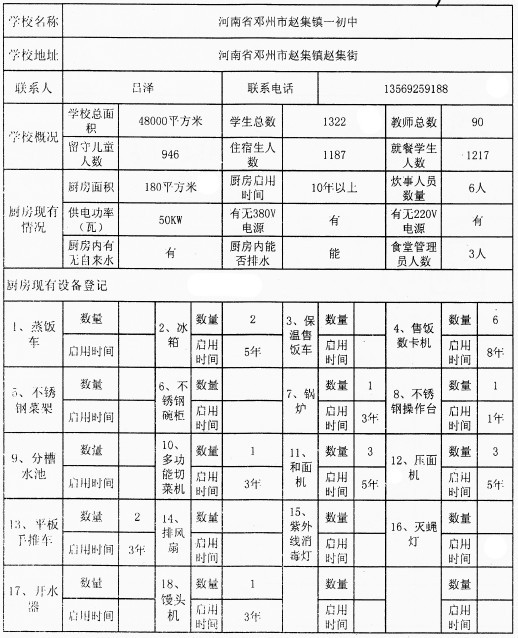 学校名称 河南省邓州市赵集镇一初中
学校地址 河南省邓州市赵集镇赵集街
联系人 吕泽 联系电话 13569259188
学校概况 学校总面积 48000平方米 学生总数 1322 教师总数 90
留守儿童人数 946 住宿生人数 1187 就餐学生人数 1217
厨房现有情况 厨房面积 180平方米 厨房启用时间 10年以上 炊事人员数量 6人
供电功率（瓦） 50KW 有无380V电源 有 有无220V电源 有
厨房内有无自来水 有 厨房内能否排水 能 食堂管理员人数 3人
厨房现有设备登记
1、蒸饭车 数量 2、冰箱 数量 2 3、保温售饭车 数量 4、售饭数卡机 数量 6
启用时间 启用时间 5年 启用时间 启用时间 8年
5、不锈钢菜架 数量 6、不锈钢碗柜 数量 7、锅炉 数量 1 8、不锈钢操作台 数量 1
启用时间 启用时间 启用时间 3年 启用时间 1年
9、分槽水池 数量 10、多功能切菜机 数量 1 11、和面机 数量 3 12、压面机 数量 3
启用时间 启用时间 3年 启用时间 5年 启用时间 5年
13、平板手推车 数量 2 14、排风扇 数量 15、紫外线消毒灯 数量 16、灭蝇灯 数量
启用时间 3年 启用时间 启用时间 启用时间
17、开水器 数量 18、馒头机 数量 1 数量 数量
启用时间 启用时间 3年 启用时间 启用时间